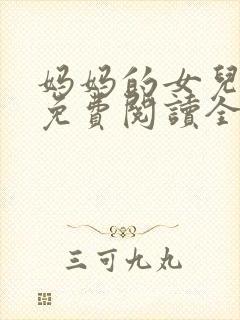 妈妈的女兒
免費閱讀全
三可九丸